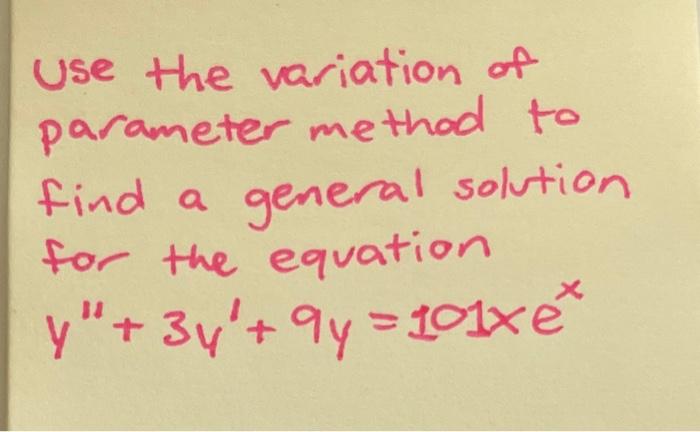 Use the variation of
parameter method to
find a general solution
for the equation
y"+ 3y'+ 9y = 101xeˣ